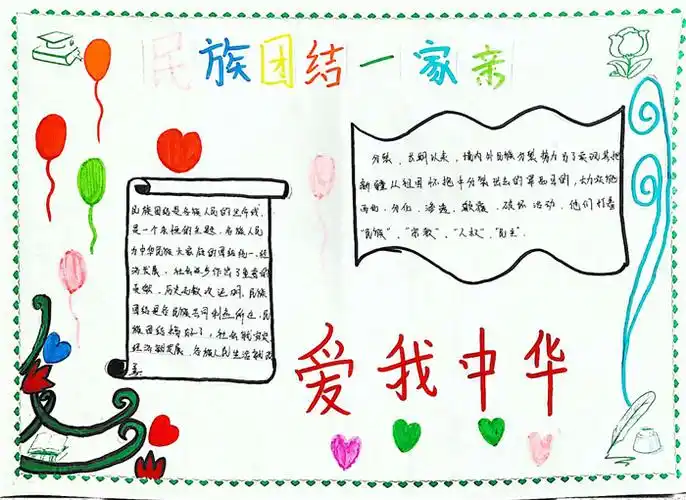 民族团结一家亲
分裂、长期以来，境内外民族分裂势力为了实现其把
新疆从祖国怀抱中分裂出去的罪恶目的，大力实施
西化、分化、渗透、颠覆、破坏活动，他们打着
“民族”、“宗教”、“人权”、“民主”.
民族团结是各族人民的生命线，
是一个永恒的主题，各族人民
为中华民族大家庭的团结统一、经
济发展，社会进步作出了重要的
贡献，历史无数次证明，民族
团结是各民族共同利益所在，民
族团结搞好了，社会就安定
经济就发展，各族人民生活就改
善
爱我中华